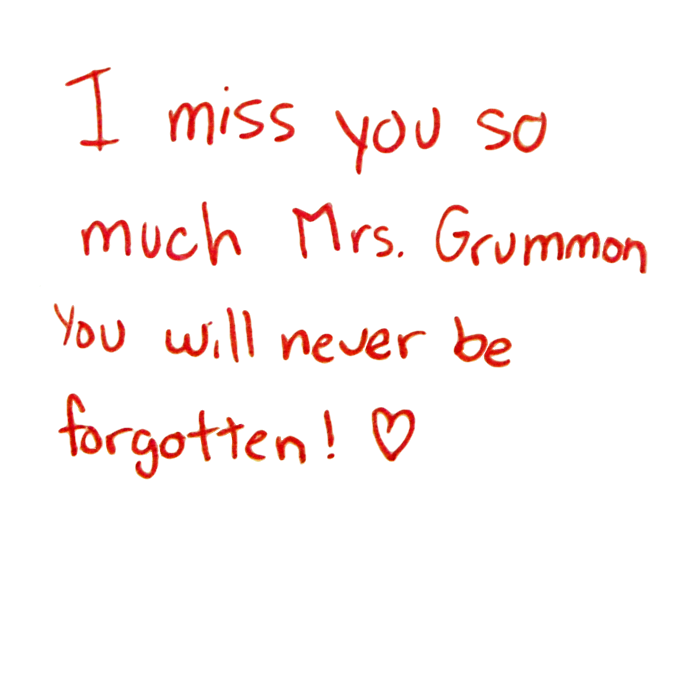 I miss you so
much Mrs. Grummon
You will never be
forgotten! ♡